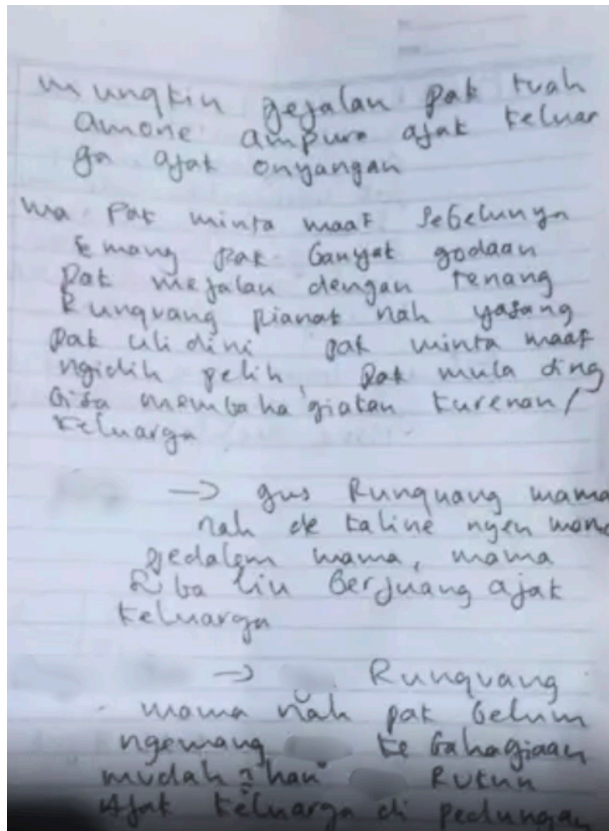 mungkin gejalan pak tuah
amone ampura ajak keluar
ga ajak onyangan
ma Pak minta maaf sebelunya
emang pak banyak godaan
pak mejalan dengan tenang
Runguang pianak nah yasang
pak uli dini pak minta maaf
ngidih pelih, pak mula sing
bisa membaha'giakan kurenan /
keluarga
→ gus Runguang mama
nah de kaline nyen
gedalem mama, mama
liu berjuang ajak
keluarga
→ Runguang
mama nah pak belum
ngemang ke bahagiaan
mudah"han Rukun
Ajak keluarga di pedungan